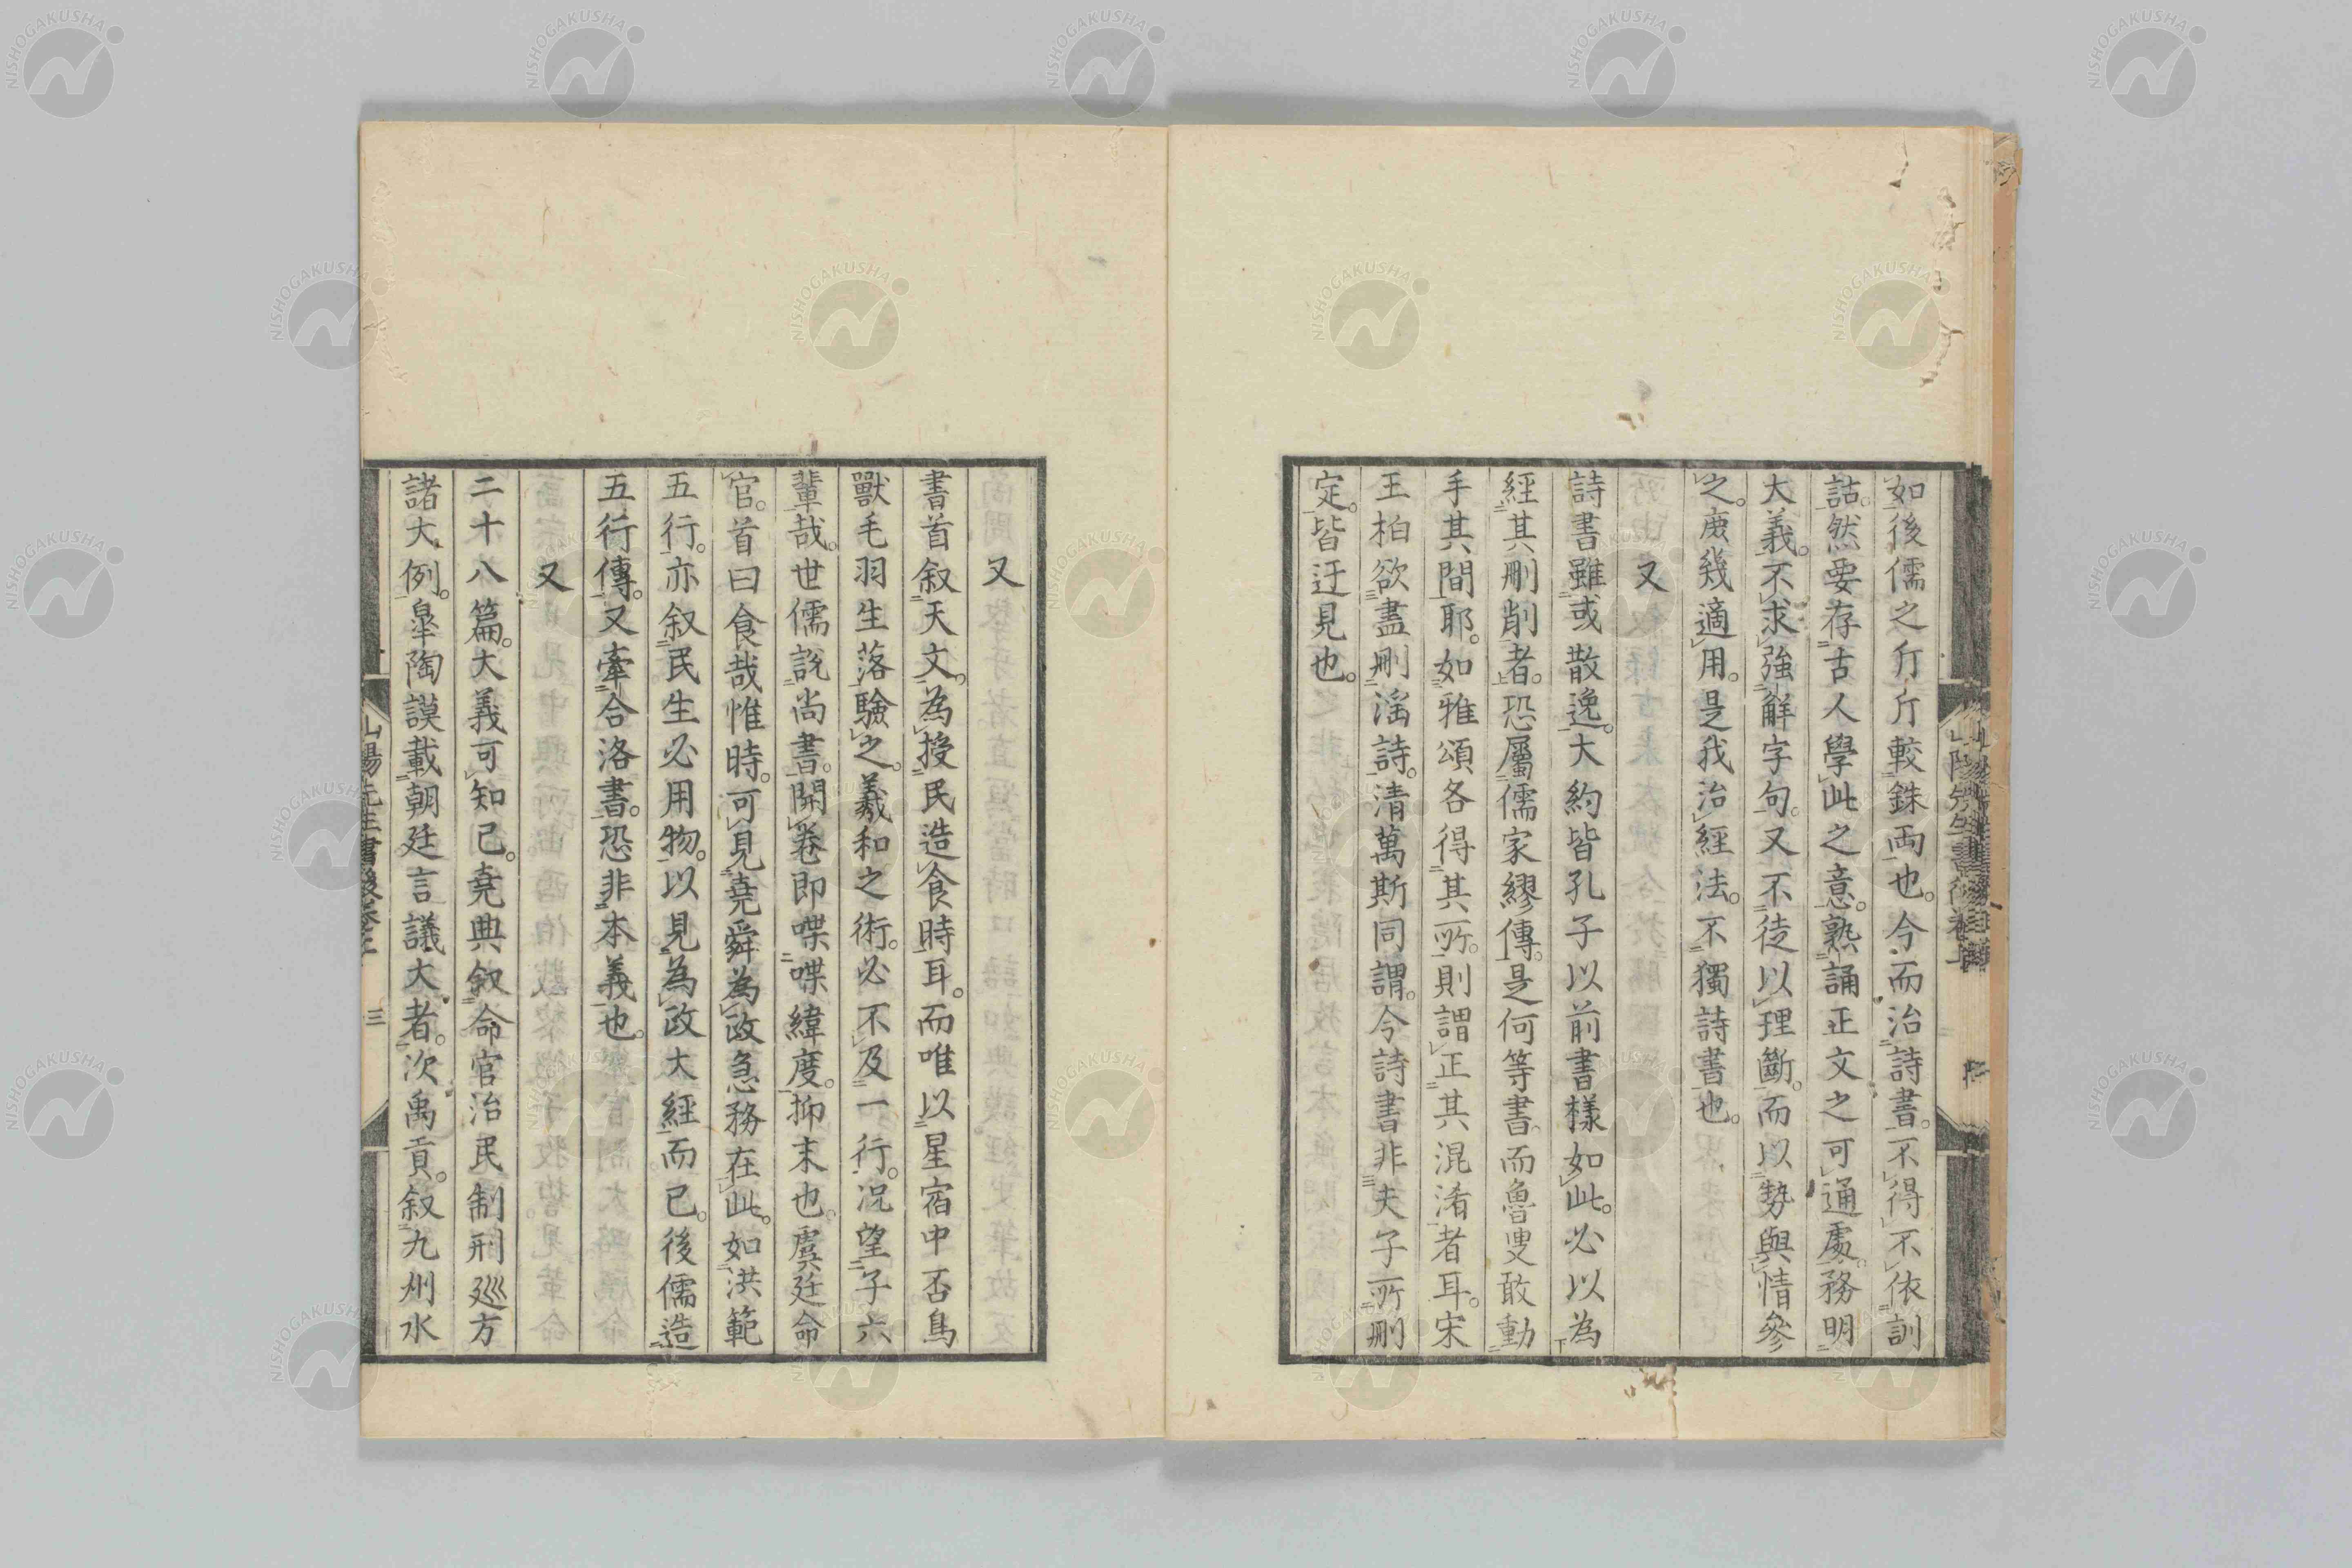 如後儒之斤斤較銖両也。今而治詩書。不得不依訓
詁。然要存古人學此之意。熟誦正文之可通處。務明
大義。不求強解字句。又不徒以理斷。而以勢與情參
之。庶幾適用。是我治經法。不獨詩書也。
又
詩書雖或散逸。大約皆孔子以前書樣如此。必以為
經其刪削者。恐屬儒家繆傳。是何等書。而魯叟敢動
手其間耶。如雅頌各得其所。則謂正其混淆者耳。宋
王柏欲盡刪淫詩。清萬斯同謂。今詩書非夫子所刪
定。皆迂見也。
又
書首叙天文。為授民造食時耳。而唯以星宿中否鳥
獸毛羽生落驗之。羲和之術。必不及一行。况望子六
輩哉。世儒説尚書。開卷即喋喋緯度。抑末也。虞廷命
官。首曰食哉惟時。可見堯舜為政急務在此。如洪範
五行。亦叙民生必用物。以見為政大經而已。後儒造
五行傳。又牽合洛書。恐非本義也。
又
二十八篇。大義可知已。堯典叙命官治民制刑巡方
諸大例。皐陶謨載朝廷言議大者。次禹貢。叙九州水
山陽先生書後卷上 三
NISHOGAKUSHA